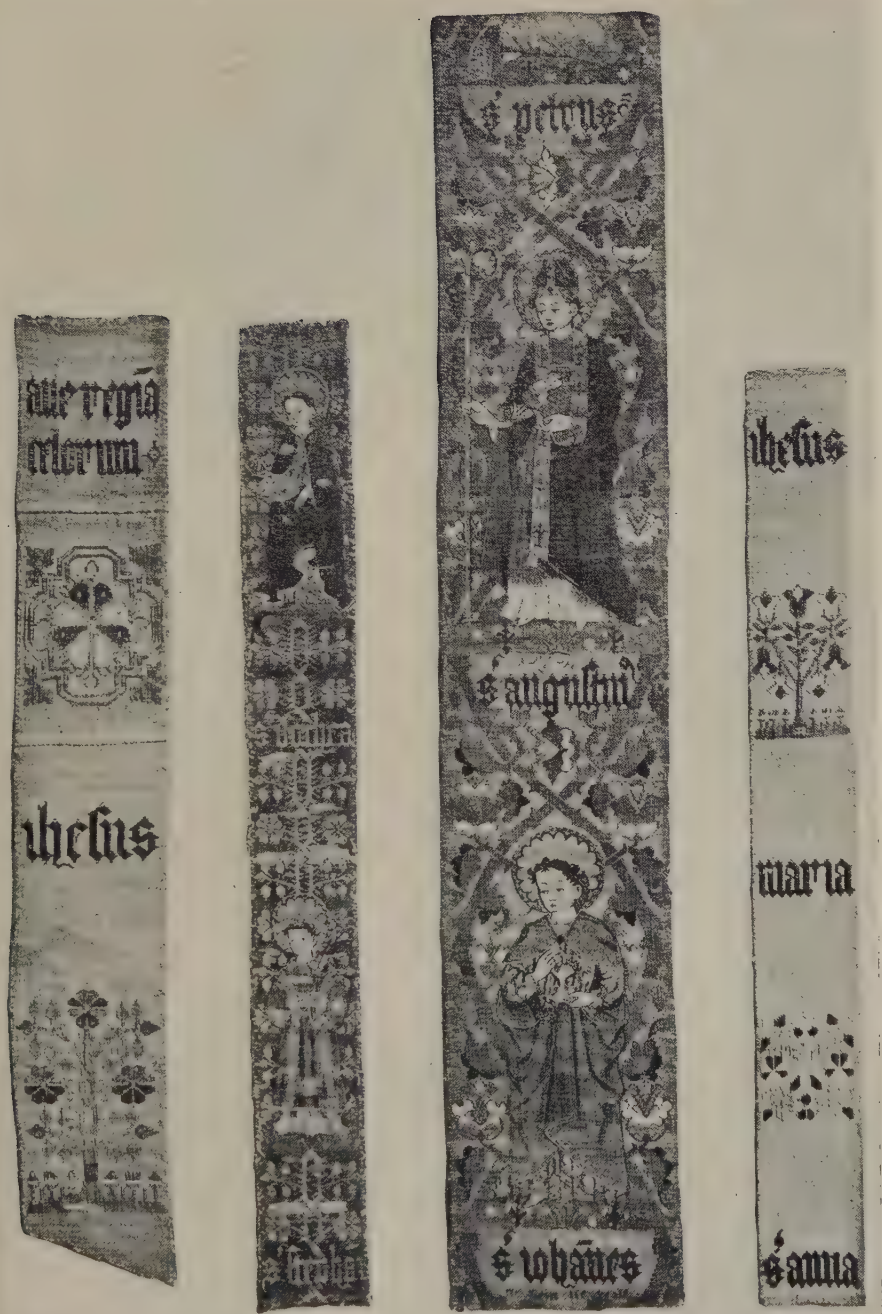 aue regīa
celorum
ihesus
s' petrus
s' augustin'
s' iohānes
ihesus
maria
s' anna